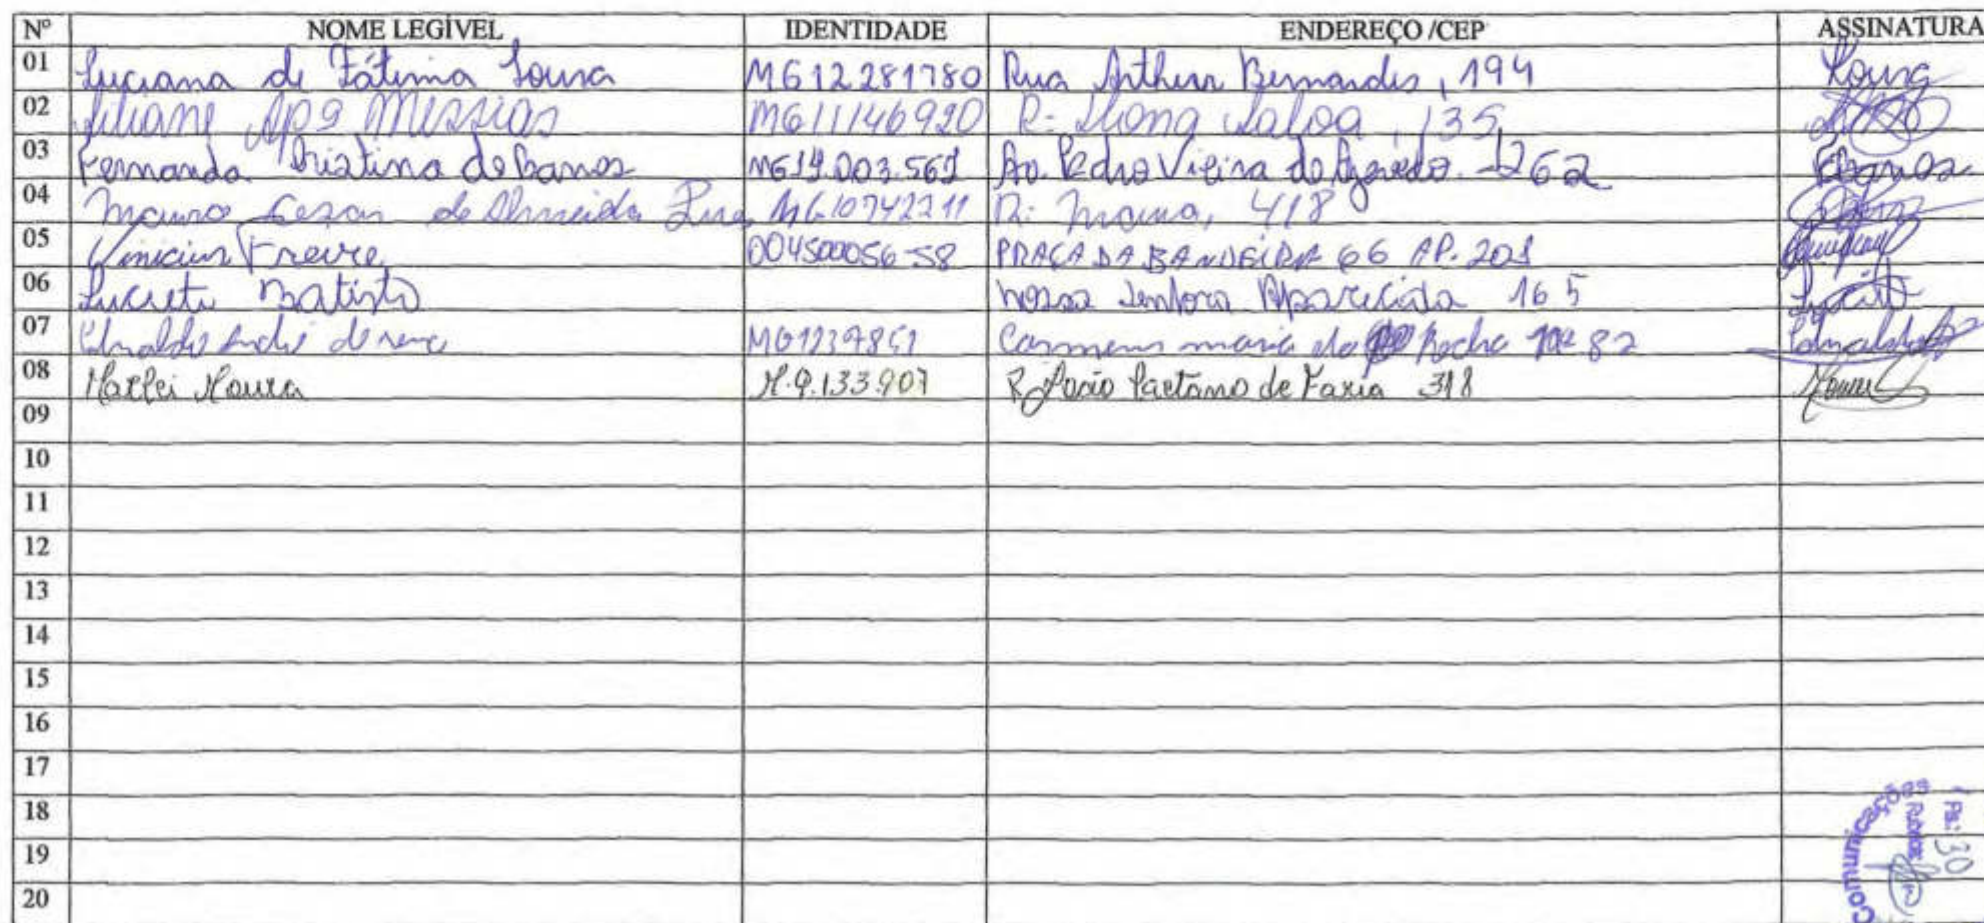 Nº NOME LEGÍVEL IDENTIDADE ENDEREÇO /CEP ASSINATURA
01 Luciana de Fátima Sousa MG12281780 Rua Arthur Bernardes, 194 Sousa
02 Liliane Apª Messias MG11146920 R: Lagoa, 135
03 Fernanda Cristina de Barros MG19.003.569 Av. Pedro Vieira de Azevedo. 262 FBarros
04 Mauro Cesar de Almeida MG10742211 R: Mauá, 418
05 Vinicius Freire 004500056-58 PRAÇA DA BANDEIRA 66 AP. 201
06 Lucieti Batista Nossa Senhora Aparecida 165
07 André MG1239851 Carmem maria da Rocha 82
08 Marlei Moura M.9.133.907 R João Caetano de Faria 318
09
10
11
12
13
14
15
16
17
18
19
20
Comunicações
Fls: 30
Rubrica